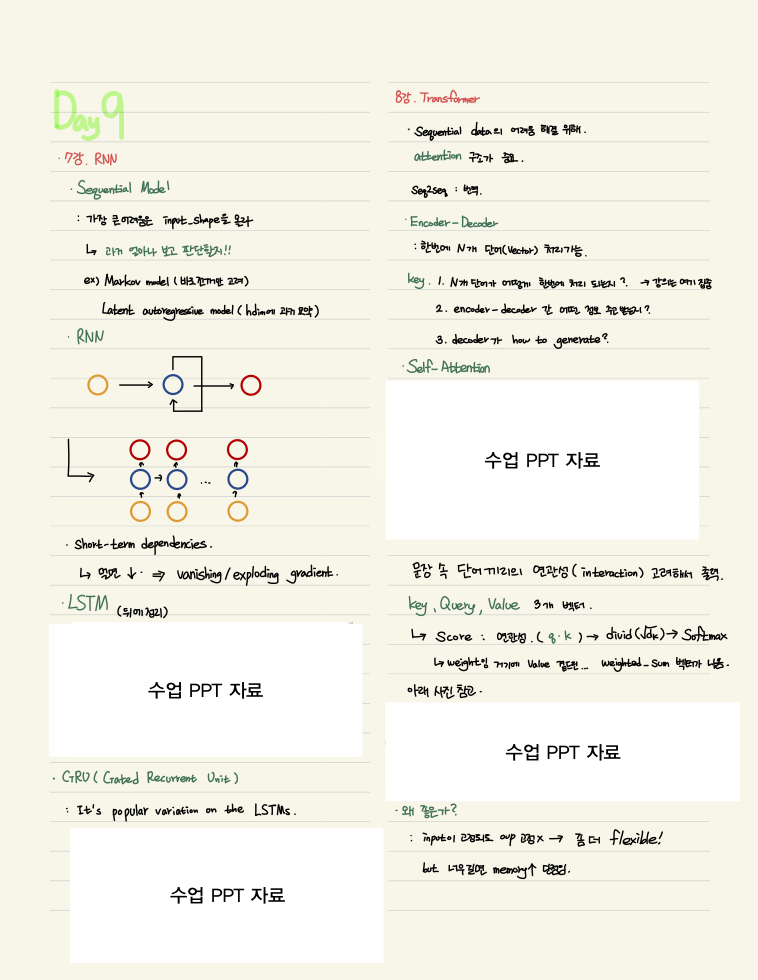 Day 9
· 7강. RNN
· Sequential Model
: 가장 큰 어려움은 input_shape을 몰라
↳ 과거 얼마나 보고 판단할지!!
ex) Markov model (바로 전꺼만 고려)
Latent autoregressive model (hdim에 과거 요약)
· RNN
...
· Short-term dependencies.
↳ 멀면 ↓. ⇒ vanishing/exploding gradient.
· LSTM (뒤에 정리)
수업 PPT 자료
· GRU (Gated Recurrent Unit)
: It's popular variation on the LSTMs.
수업 PPT 자료
8강. Transformer
· Sequential data의 어려움 해결 위해.
attention 구조가 중요.
Seq2seq : 번역.
· Encoder-Decoder
: 한번에 N개 단어(Vector) 처리가능.
key. 1. N개 단어가 어떻게 한번에 처리 되는지?. → 강의는 여기 집중
2. encoder-decoder 간 어떤 정보 주고받는지?.
3. decoder가 how to generate?.
· Self-Attention
수업 PPT 자료
문장 속 단어끼리의 연관성(interaction) 고려해서 출력.
key, Query, Value 3개 벡터.
↳ Score : 연관성. (q·k) → divid(√dk) → Softmax
↳ weight임 거기에 Value 곱드면... weighted_sum 벡터가 나옴.
아래 사진 참고.
수업 PPT 자료
· 왜 좋은가?
: input이 고정되도 oup 고정x → 좀 더 flexible!
but 너무 길면 memory↑ 단점임.